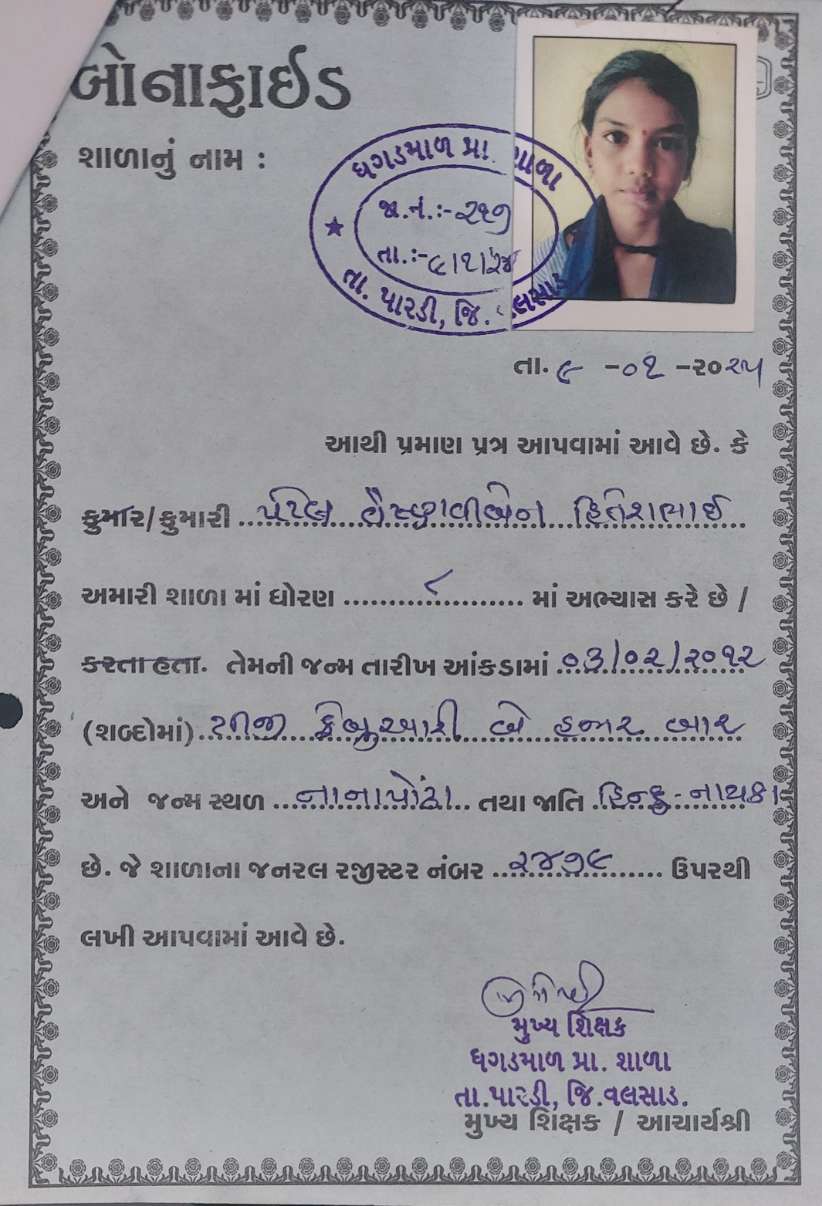 બોનાફાઈડ
શાળાનું નામ :
ધગડમાળ પ્રા. શાળા
જા.નં.:-૨૧૭
તા.:-૯/૧/૨૪
તા. પારડી, જિ. વલસાડ
તા. ૯ -૦૧ -૨૦૨૫
આથી પ્રમાણ પત્ર આપવામાં આવે છે. કે
કુમાર/કુમારી પટેલ વૈષ્ણવીબેન હિતેશભાઈ
અમારી શાળા માં ધોરણ ૮ માં અભ્યાસ કરે છે /
કરતા હતા. તેમની જન્મ તારીખ આંકડામાં ૦૩/૦૨/૨૦૧૨
(શબ્દોમાં) ત્રીજી ફેબ્રુઆરી બે હજાર બાર
અને જન્મ સ્થળ નાનાપોંઢા તથા જાતિ હિન્દુ-નાયકા
છે. જે શાળાના જનરલ રજીસ્ટર નંબર ૨૪૭૯ ઉપરથી
લખી આપવામાં આવે છે.
મુખ્ય શિક્ષક
ધગડમાળ પ્રા. શાળા
તા.પારડી, જિ.વલસાડ.
મુખ્ય શિક્ષક / આચાર્યશ્રી